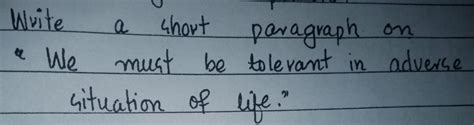 Write a short paragraph on
" We must be tolerant in adverse
situation of life."